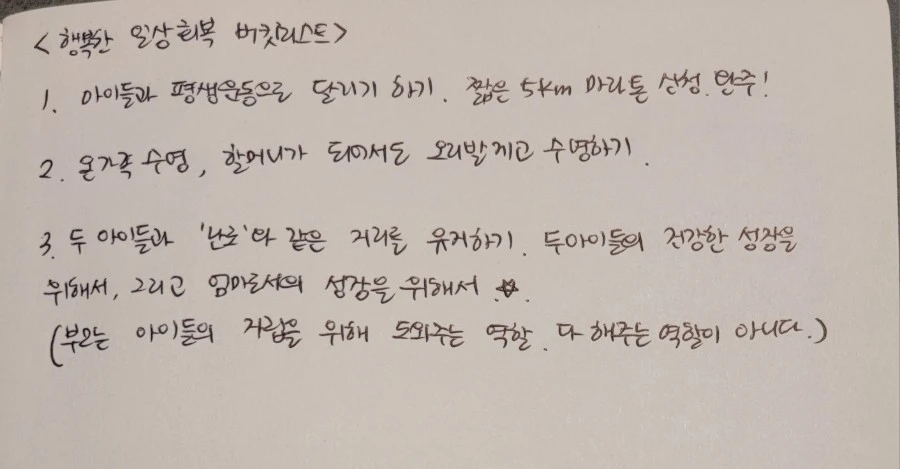 <행복한 일상회복 버킷리스트>
1. 아이들과 평생운동으로 달리기 하기. 짧은 5km 마라톤 신청. 완주!
2. 온가족 수영, 할머니가 되어서도 오리발 끼고 수영하기.
3. 두 아이들과 '난로'와 같은 거리를 유지하기. 두아이들의 건강한 성장을
위해서, 그리고 엄마로서의 성장을 위해서.
(부모는 아이들의 자립을 위해 도와주는 역할. 다 해주는 역할이 아니다.)